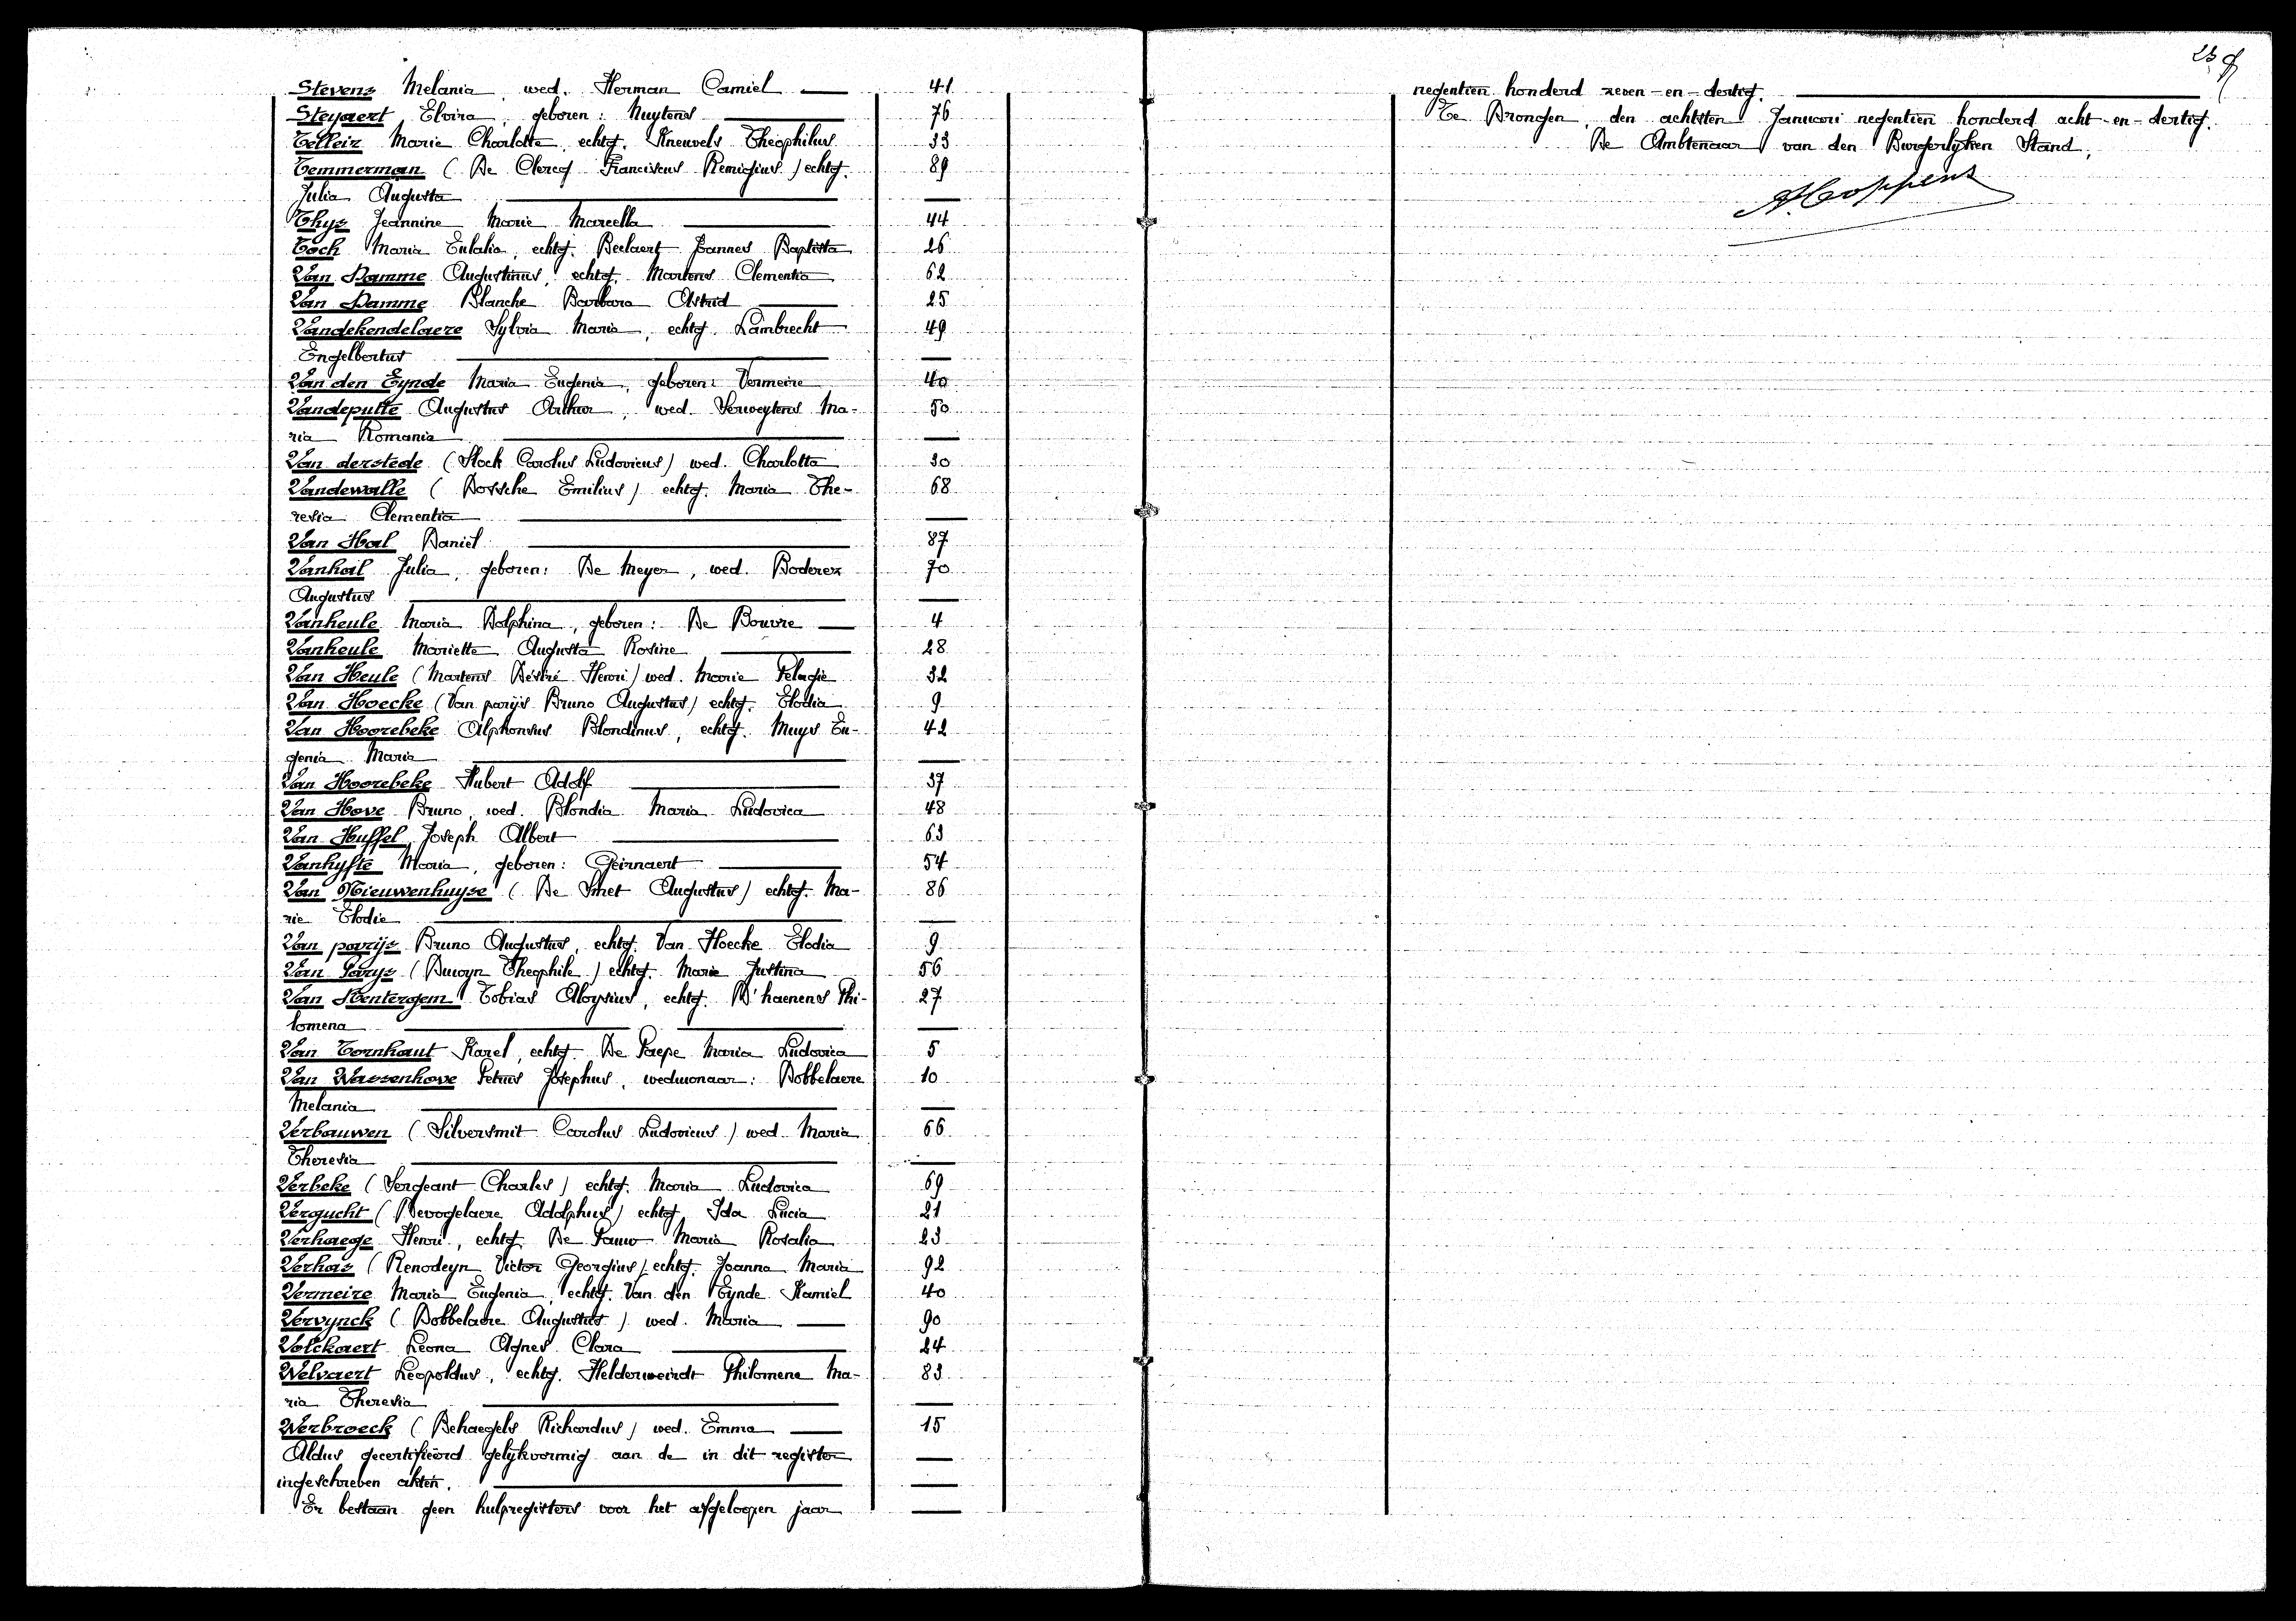 Stevens Melania, wed. Herman Camiel — 41
Steyaert Elvira, geboren: Nuytens — 76
Telleir Marie Charlotte, echtg. Kneuvels Theophilus 33
Temmerman (De Clercq Franciscus Remigius) echtg. 89
Julia Augusta —
Thys Jeannine Marie Marcella — 44
Toch Maria Eulalia, echtg. Beelaert Joannes Baptista 26
Van Damme Augustinus, echtg. Martens Clementia 62
Van Damme Blanche Barbara Astrid — 25
Vandekendelaere Sylvia Maria, echtg. Lambrecht 49
Engelbertus —
Van den Eynde Maria Eugenia, geboren: Vermeire 40
Vandeputte Augustus Arthur, wed. Serweytens Ma- 50
ria Romania —
Van derstede (Stock Carolus Ludovicus) wed. Charlotta 30
Vandewalle (Bossche Emilius) echtg. Maria The- 68
resia Clementia —
Van Hal Daniel — 87
Vanhal Julia, geboren: De Meyer, wed. Boderez 70
Augustus —
Vanheule Maria Dolphina, geboren: De Bouvre — 4
Vanheule Mariette Augusta Rosine — 28
Van Heule (Martens Désiré Henri) wed. Marie Pelagie 32
Van Hoecke (Van parijs Bruno Augustus) echtg. Elodia 9
Van Hoorebeke Alphonsius Blondinus, echtg. Muys Eu- 42
genia Maria —
Van Hoorebeke Hubert Adolf — 37
Van Hove Bruno, wed. Blondia Maria Ludovica 48
Van Huffel Joseph Albert — 63
Vanhyfte Maria, geboren: Geirnaert — 54
Van Nieuwenhuyse (De Smet Augustus) echtg. Ma- 86
rie Elodie —
Van parijs Bruno Augustus, echtg. Van Hoecke Elodia 9
Van Parys (Buwyn Theophile) echtg. Marie Justina 56
Van Renterghem Tobias Aloysius, echtg. D'haenens Phi- 27
lomena —
Van Tornhaut Karel, echtg. De Paepe Maria Ludovica 5
Van Wassenhove Petrus Josephus, weduwnaar: Dobbelaere 10
Melania —
Verbauwen (Silversmit Carolus Ludovicus) wed. Maria 66
Theresia —
Verbeke (Sergeant Charles) echtg. Maria Ludovica 69
Vergucht (Devogelaere Adolphus) echtg. Ida Lucia 21
Verhaege Henri, echtg. De Pauw Maria Rosalia 23
Verhas (Renodeyn Victor Georgius) echtg. Joanna Maria 92
Vermeire Maria Eugenia, echtg. Van den Eynde Kamiel 40
Vervynck (Dobbelaere Augustus) wed. Maria — 90
Volckaert Leona Agnes Clara — 24
Welvaert Leopoldus, echtg. Helderweirdt Philomena Ma- 83
ria Theresia —
Werbroeck (Behaegels Richardus) wed. Emma — 15
Aldus gecertifieerd gelijkvormig aan de in dit register —
ingeschreven akten. —
Er bestaan geen hulpregisters voor het afgeloopen jaar —
negentien honderd zeven-en-dertig. —
Te Drongen, den achtsten Januari negentien honderd acht-en-dertig.
De Ambtenaar van den Burgerlyken Stand,
A. Coppens